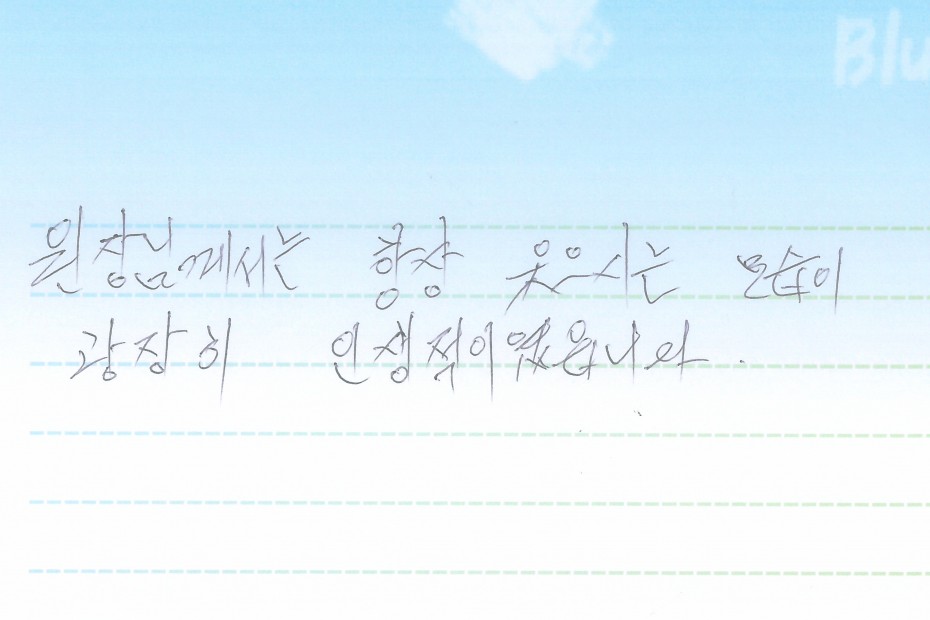 Blu
원장님께서는 항상 웃으시는 모습이
광장히 인상적이었읍니다.